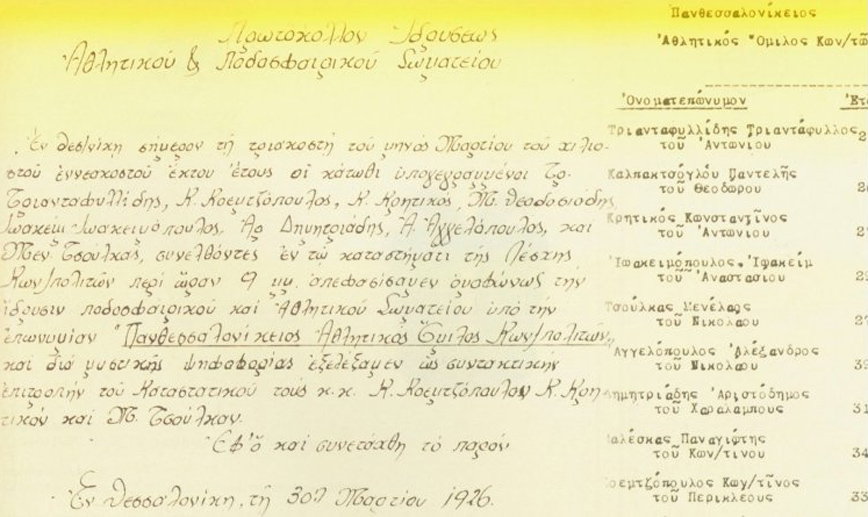 Πρωτόκολλον Ἱδρύσεως
Ἀθλητικοῦ & Ποδοσφαιρικοῦ Σωματείου
Ἐν Θεσ/νίκη σήμερον τῇ τριακοστῇ τοῦ μηνός Μαρτίου τοῦ χιλιο-
στοῦ ἐννεακοστοῦ ἕκτου ἔτους οἱ κάτωθι ὑπογεγραμμένοι Τρ.
Τριανταφυλλίδης, Κ. Κρεμτζόπουλος, Κ. Κρητικός, Μ. Θεοδοσιάδης,
Ἰωακείμ Ἰωακειμόπουλος, Αρ. Δημητριάδης, Ἀ. Ἀγγελόπουλος, καί
Μεν. Τσούλκας, συνελθόντες ἐν τῷ καταστήματι τῆς Λέσχης
Κων/πολιτῶν περί ὥραν 9 μμ. ἀπεφασίσαμεν ὁμοφώνως τήν
ἵδρυσιν ποδοσφαιρικοῦ καί Ἀθλητικοῦ Σωματείου ὑπό τήν
ἐπωνυμίαν "Πανθεσσαλονίκειος Ἀθλητικός Ὅμιλος Κων/πολιτῶν"
καί διά μυστικῆς ψηφοφορίας ἐξελέξαμεν ὡς συντακτικήν
ἐπιτροπήν τοῦ Καταστατικοῦ τούς κ.κ. Κ. Κρεμτζόπουλον Κ. Κρη-
τικόν καί Μ. Τσούλκαν.
Ἐφ' ᾧ καί συνετάχθη τό παρόν
Ἐν Θεσσαλονίκῃ, τῇ 30ῇ Μαρτίου 1926.
Πανθεσσαλονίκειος
Ἀθλητικός Ὅμιλος Κων/τῶ
Ὀνοματεπώνυμον
Τριανταφυλλίδης Τριαντάφυλλος
τοῦ Ἀντωνίου
Καλπακτσόγλου Παντελῆς
τοῦ Θεοδώρου
Κρητικός Κωνσταντῖνος
τοῦ Ἀντωνίου
Ἰωακειμόπουλος Ἰωακείμ
τοῦ Ἀναστασίου
Τσούλκας Μενέλαος
τοῦ Νικολάου
Ἀγγελόπουλος Ἀλέξανδρος
τοῦ Νικολάου
ημητριάδης Ἀριστόδημος
τοῦ Χαραλάμπους 31
αλέσκας Παναγιώτης
τοῦ Κων/τίνου 34
ρεμτζόπουλος Κων/τῖνος
τοῦ Περικλέους 33